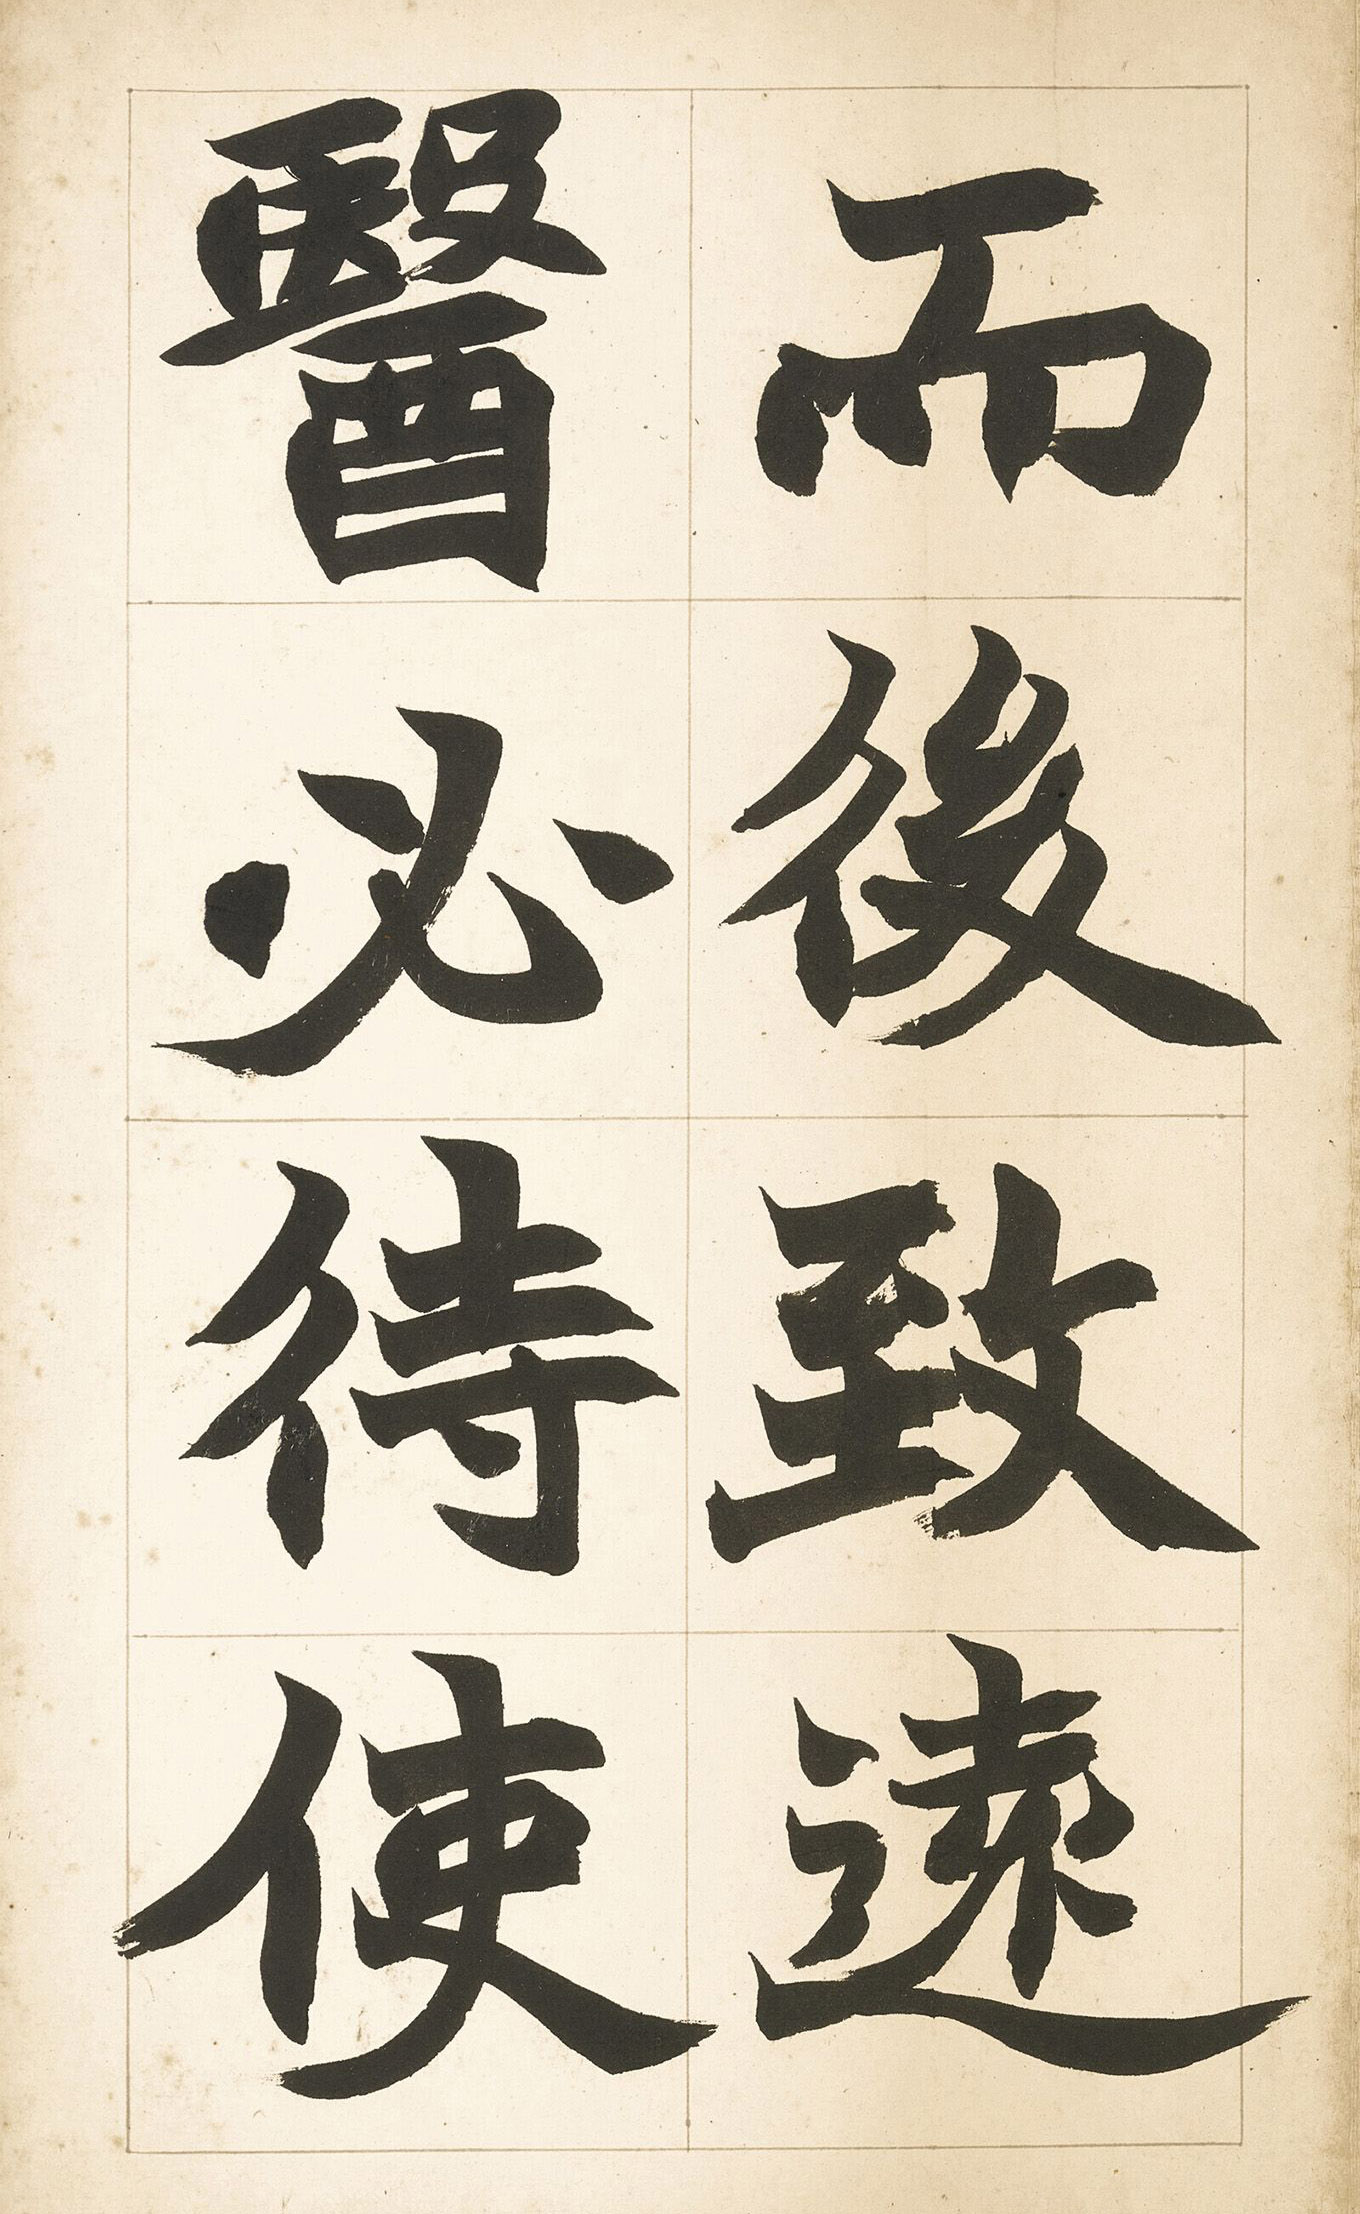 而後致遠
醫必待使